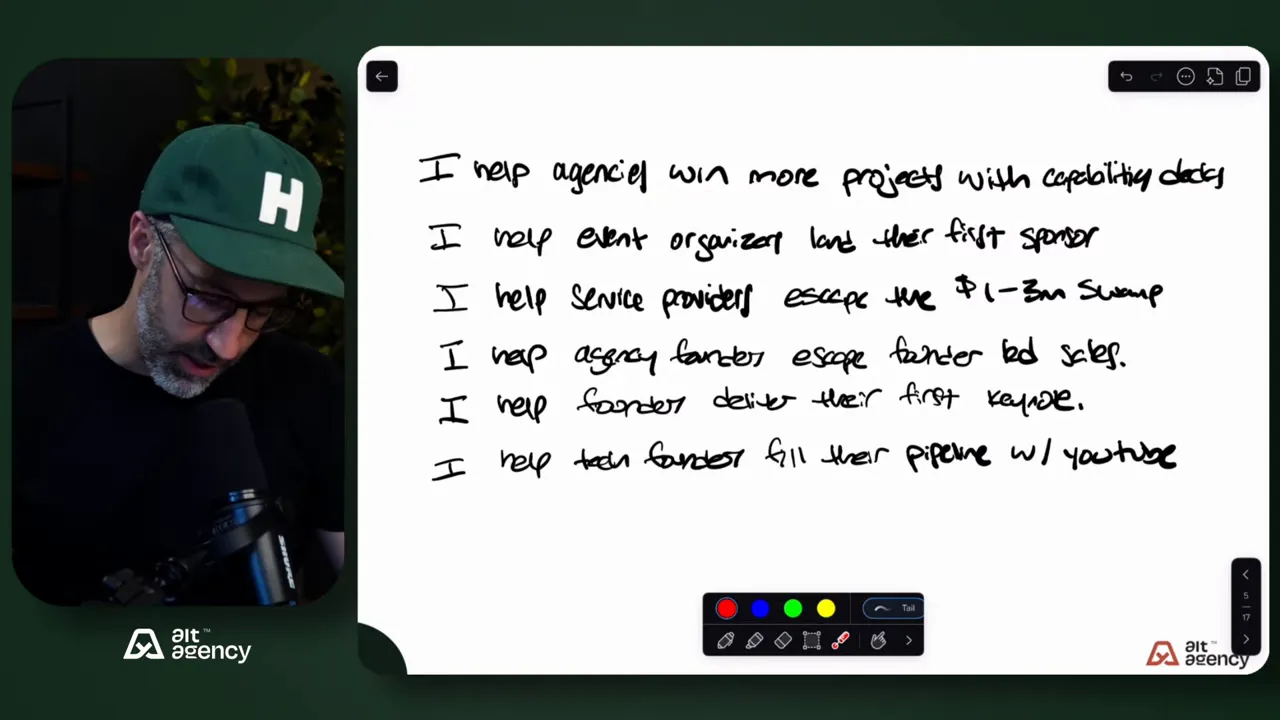 H
SHURE
alt™
agency
I help agencies win more projects with capability decks
I help event organizers land their first sponsor
I help service providers escape the $1-3m swamp
I help agency founders escape founder led sales.
I help founders deliver their first keynote.
I help tech founders fill their pipeline w/ youtube
Tail
5
17
alt™
agency